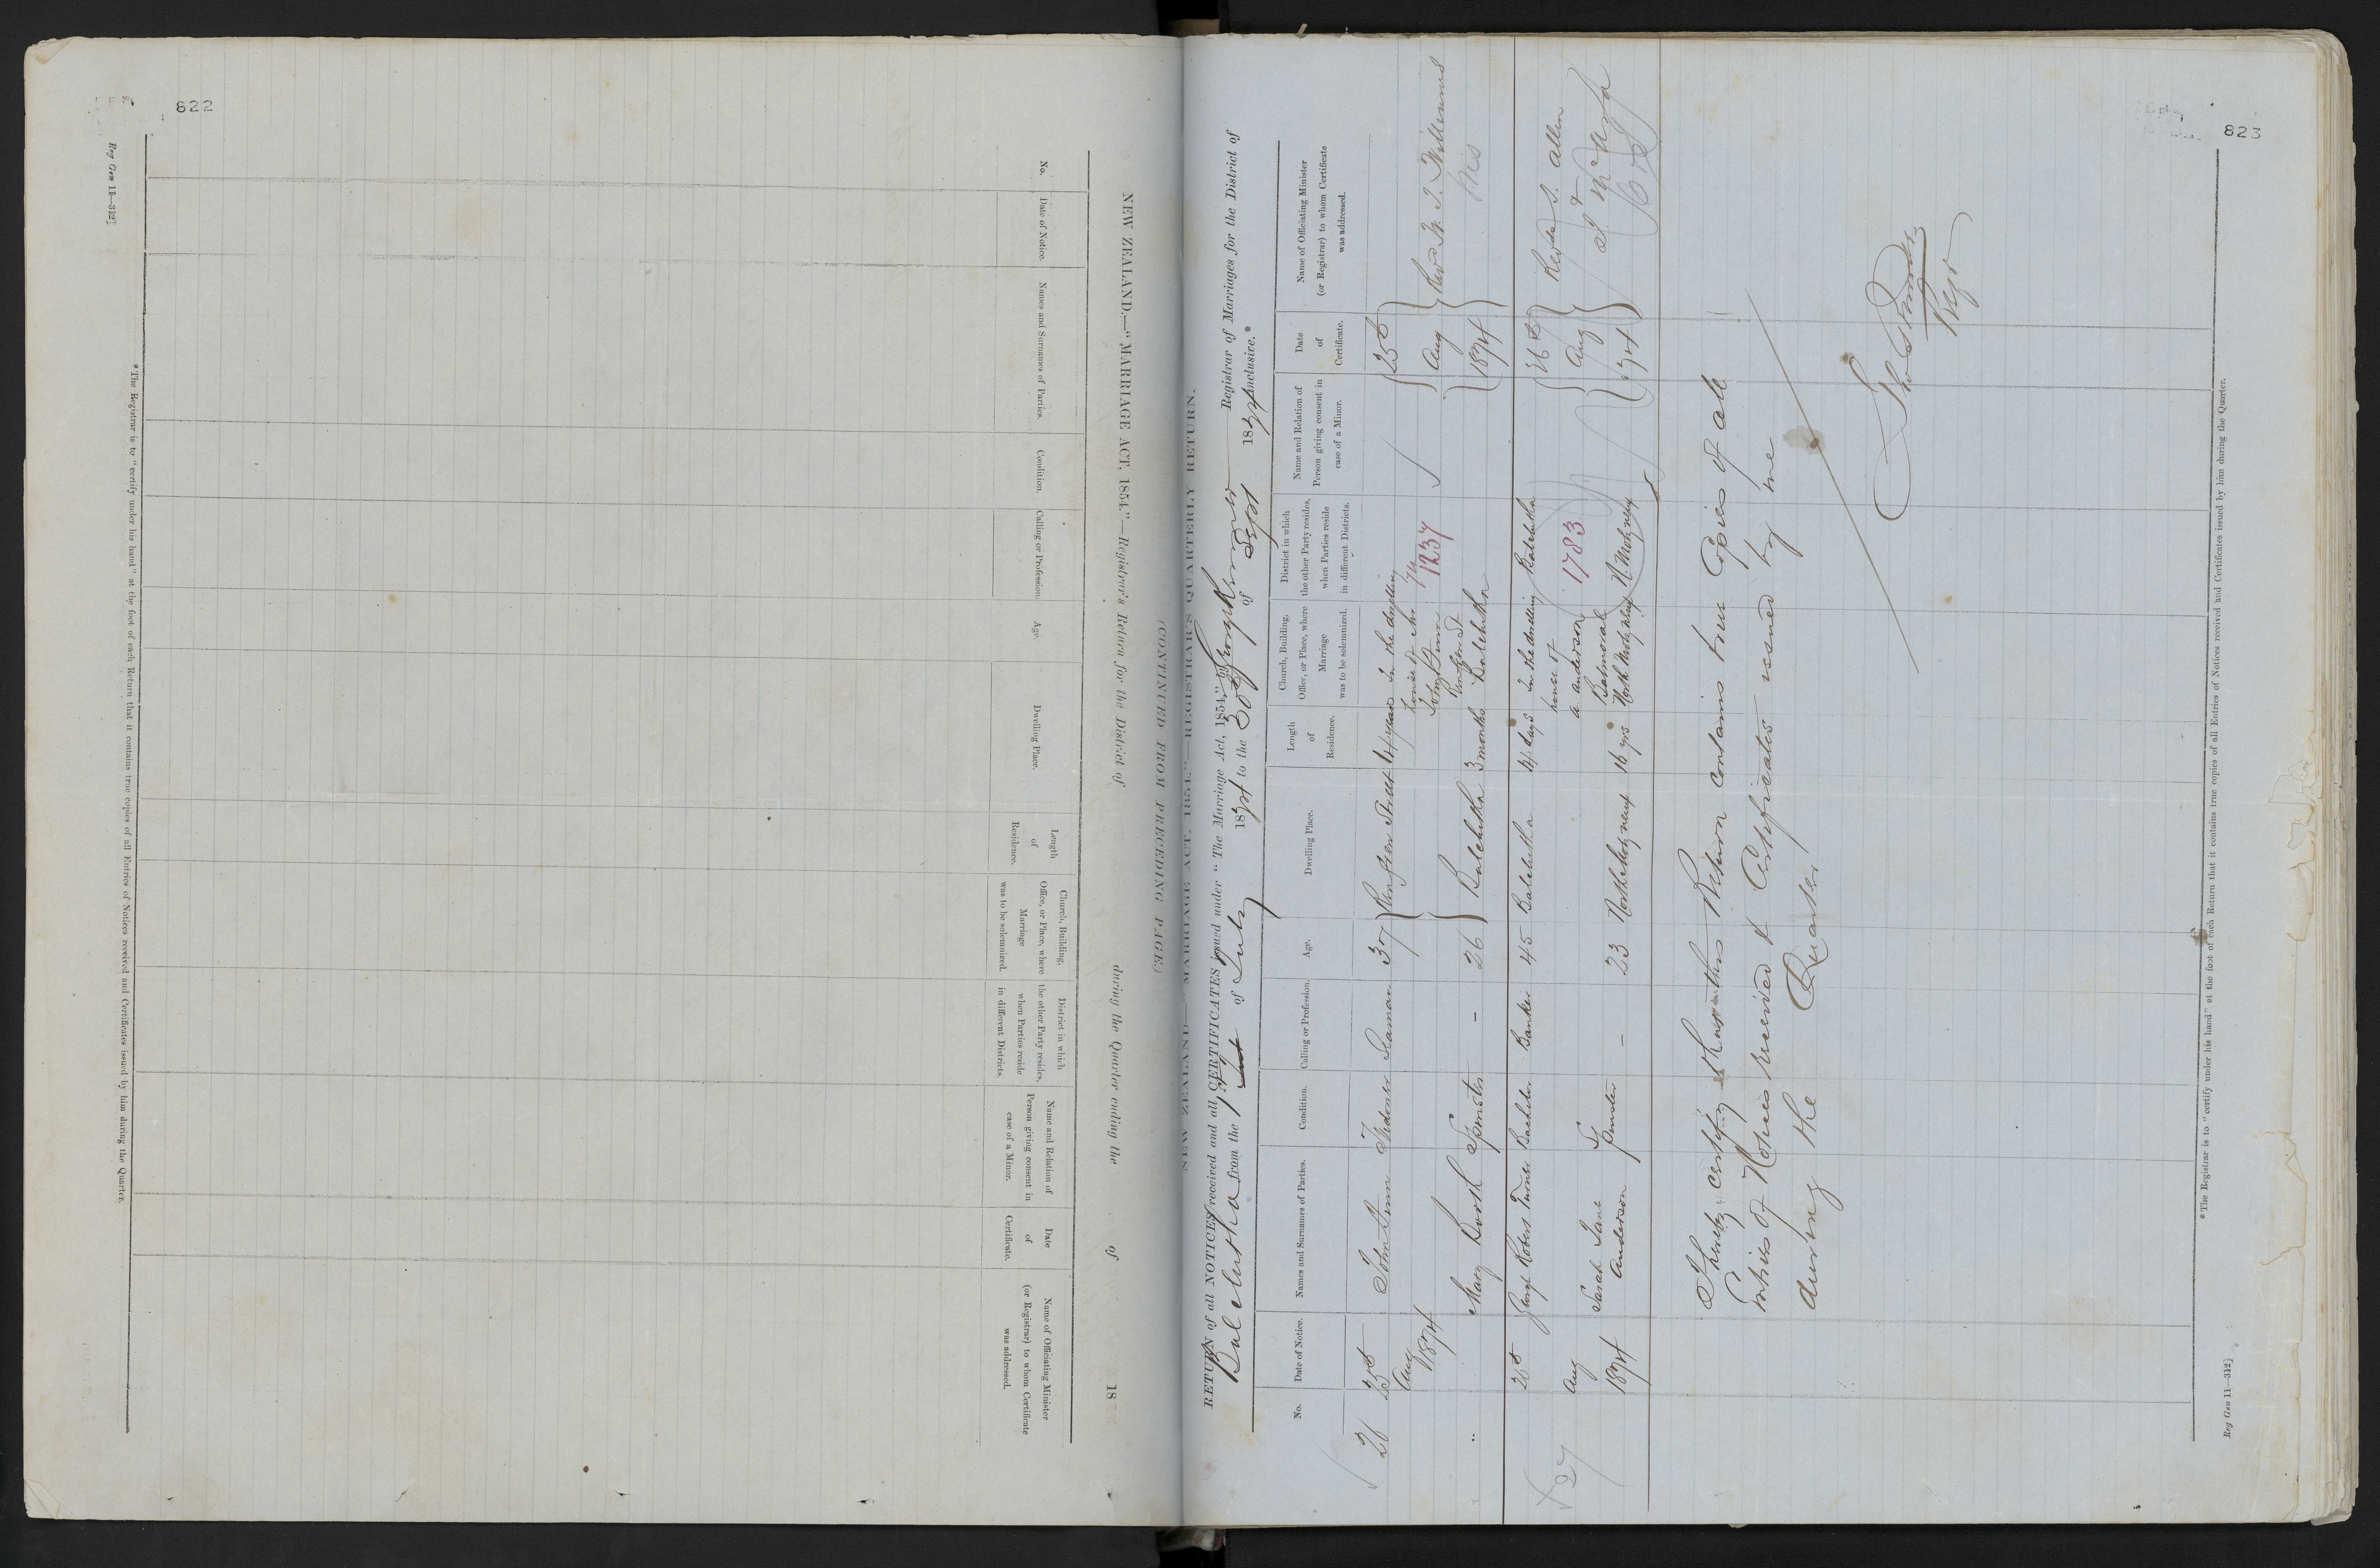 822
NEW ZEALAND.—"MARRIAGE ACT, 1854."—Registrar's Return for the District of during the Quarter ending the of 18
(CONTINUED FROM PRECEEDING PAGE.)
No.
Date of Notice.
Names and Surnames of Parties.
Condition.
Calling or Profession.
Age.
Dwelling Place.
Length of Residence.
Church, Building, Office, or Place, where Marriage was to be solemnized.
District in which the other Party resides, when Parties reside in different Districts.
Name and Relation of Person giving consent in case of a Minor.
Date of Certificate.
Name of Officiating Minister (or Registrar) to whom Certificate was addressed.
*The Registrar is to "certify under his hand" at the foot of each Return that it contains true copies of all Entries of Notices received and Certificates issued by him during the Quarter.
Reg Gen 11—312]
823
NEW ZEALAND.—"MARRIAGE ACT, 1854."—REGISTRAR'S QUARTERLY RETURN.
RETURN of all NOTICES received and all CERTIFICATES issued under "The Marriage Act, 1854," by Registrar of Marriages for the District of
Balclutha from the 1st of July 1874 to the 30 of Sept 1874 inclusive.*
No.
Date of Notice.
Names and Surnames of Parties.
Condition.
Calling or Profession.
Age.
Dwelling Place.
Length of Residence.
Church, Building, Office, or Place, where Marriage was to be solemnized.
District in which the other Party resides, when Parties reside in different Districts.
Name and Relation of Person giving consent in case of a Minor.
Date of Certificate.
Name of Officiating Minister (or Registrar) to whom Certificate was addressed.
26 25th Aug 1874 John Dunn Widower 37 Renfrew Street 4 years In the dwelling house of Mr John Dunn Renfrew St Balclutha 25th Aug 1874 Revd Williams
74
1237
Mary Booth Spinster - 26 Balclutha 3 months
27 26th Aug 1874 George Robert Turner Bachelor Banker 45 Balclutha 4 days In the dwelling house of A Anderson Balmoral North Molyneux Balclutha 26th Aug 1874 Revd S. Allen
1783
Sarah Jane Anderson Spinster - 23 North Molyneux 16 yrs N Molyneux
I hereby certify that this Return contains true Copies of all
Entries of Notices received & Certificates issued by me
during the Quarter
Regr
*The Registrar is to "certify under his hand" at the foot of each Return that it contains true copies of all Entries of Notices received and Certificates issued by him during the Quarter.
Reg Gen 11—312]